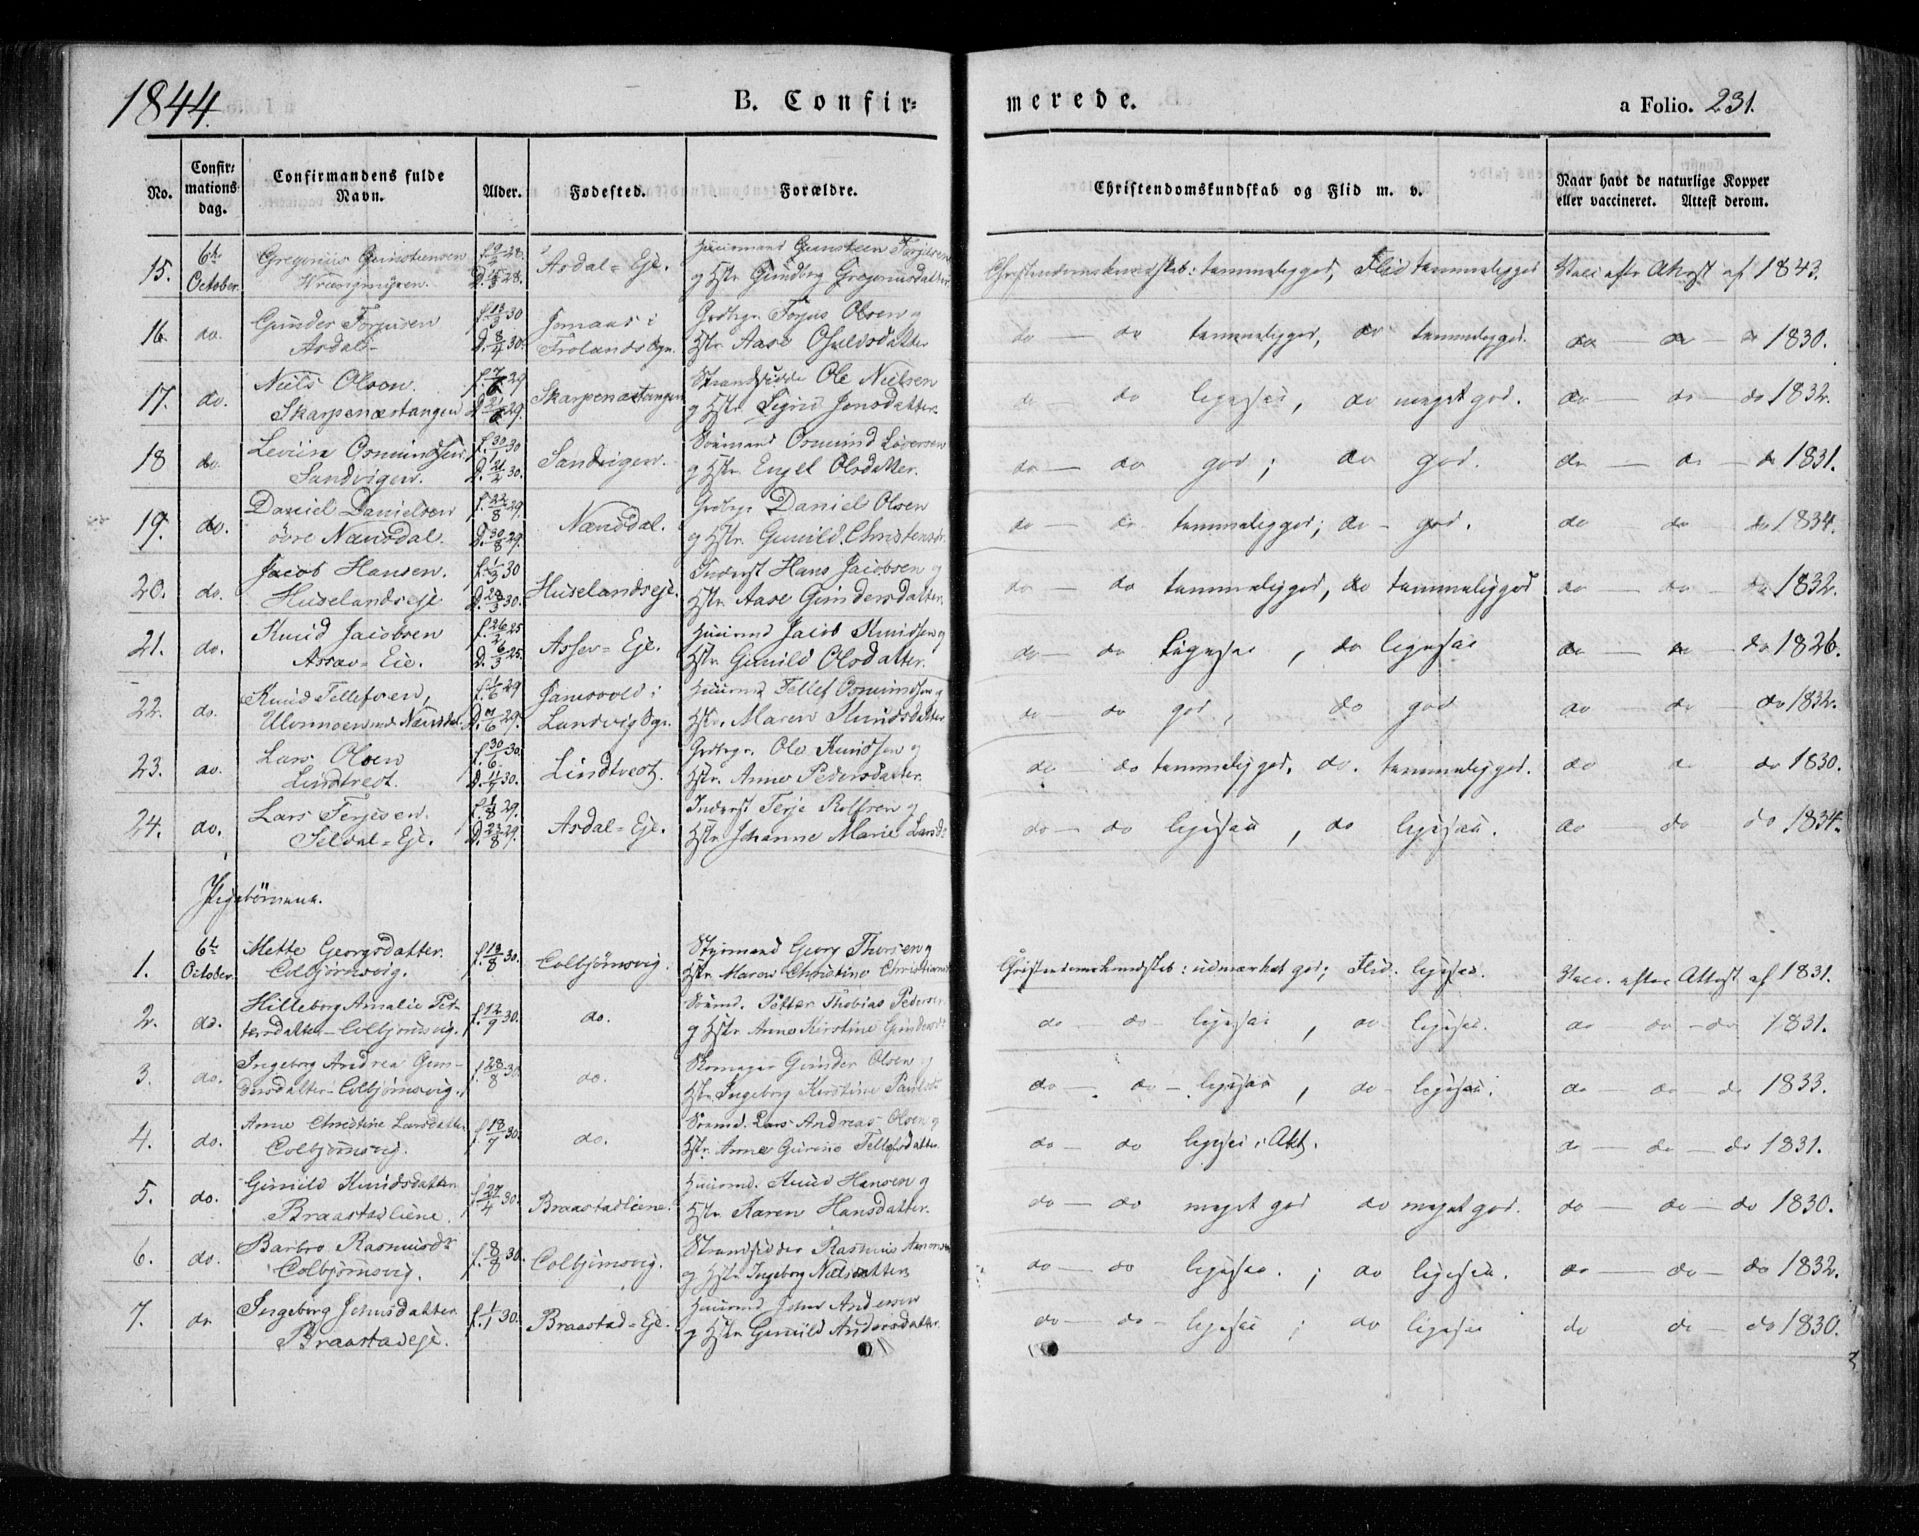 1844.
B. Confirmerede.
a Folio. 231.
No.
Confirmations dag.
Confirmandens fulde Navn.
Alder.
Fødested.
Forældre.
Christendomskundskab og Flid m. v.
Naar havt de naturlige Kopper eller vaccineret. Attest derom.
15. 6te October. Gregorius Gunstensen f. 9/3 28. D. 15/3 28. Asdal=Eje. Huusmand Gunsteen Terjesen og Hstr. Gunborg Gregoriusdatter Christendomskundskab: temmeligged, Flid temmeligged Vacc. efter Attest af 1843.
16. do. Gunder Torjusen Asdal f. 13/3 30 D. 8/4 30. Jomaas i Frolands Sogn. Grdbrgr Torjus Olsen og Hstr. Aase do — do temmeligged, do temmeligged. do — do — do 1830.
17. do. Niels Olsen Skarpenæstangen f. 7/6 29 D. 21/6 29. Skarpenæstangen Strandsidder Ole Nielsen og Hstr. Sigrid Jensdatter. do — do ligesaa, do meget god. do — do — do 1832.
18 do Osmundsen Sandvigen. f. 30/1 30 D. 21/2 30. Sandvigen. Sømand Osmund og Hstr. Engel Olsdatter. do — do god; do god. do — do — do 1831.
19. do. Daniel Danielsen øvre Næversdal. f. 22/8 29. D. 30/8 29. Næversdal. Grdbrgr Daniel Olsen og Hstr. Gunild Christensdr. do — do temmeligged; do — god. do do do 1834.
20. do. Jacob Hansen. Huselandseje f. 1/3 30 D. 28/3 30. Huselandseje. Inderst Hans Jacobsen og Hstr. Aase Gundersdatter. do — do temmeligged, do temmeligged do — do — do 1832.
21. do. Knud Jacobsen Assev=Eie. f. 26/2 25 D. 6/3 25. Assev=Eje. Huusmd Jacob Knudsen og Hstr. Gunild Olsdatter. do — do ligesaa, do ligesaa do — do — do 1826.
22. do. Knud Tellefsen, f. 1/6 29 D. 7/6 29. i Landvig Sogn. Huusmd Tellef Osmundsen og Hstr. Maren Knudsdatter do — do god, do god do do do 1832.
23. do. Lars Olsen Lindtvedt. f. 30/6 30. D. 11/7 30. Lindtvedt. Grdbrgr. Ole Knudsen og Hstr. Anne Pedersdatter. do do temmeligged, do. temmeligged. do do do 1830.
24. do. Lars Terjesen. Seldal=Eje. f. 1/8 29. D. 23/8 29. Asdal=Eje. Inderst Terje Rolfsen og Hstr. Johanne Marie Larsd: do — do ligesaa, do ligesaa. do do do 1834.
Pigebørnene.
1. 6te October. Mette Georgsdatter. Colbjørnsvig. f. 13/8 30. Colbjørnsvig. Styrmand Georg Thorsen og Hstr. Maren Christine Christendomskundskab: udmærket god; Flid. ligesaa. Vacc. efter Attest af 1831.
2. do. Hilleborg Amalie Pettersdatter — Colbjørnsvig. f. 12/9 30. do. Sømd. Petter Thobias Pedersen og Hstr Anne Kirstine Gundersdr do do — ligesaa, do — ligesaa. do do — do 1831.
3. do. Ingeborg Andrea Gundersdatter — Colbjørnsvig. f. 28/8 30. do. Skomager Gunder Olsen og Hstr Ingeborg Kirstine do — do — ligesaa, do — ligesaa. do do — do 1833.
4. do. Anne Christine Larsdatter Colbjørnsvig. f. 18/7 30. do. Sømd. Lars Andreas Olsen og Hstr. Anne Gurine Tellefsdatter. do — do ligesaa, do — do — do 1831.
5. do. Gunild Knudsdatter Braastadliene. f. 27/4 30. Braastadliene. Huusmd. Knud Hansen og Hstr. Karen Hansdatter. do — do meget god do meget god. do — do — do 1830.
6. do. Barbro Rasmusdr Colbjørnsvig. f. 8/8 30. Colbjørnsvig. Strandsidder Rasmus og Hstr. Ingeborg Nielsdatter do — do ligesaa.; do ligesaa. do — do — do 1832.
7. do Ingeborg Johnsdatter. Braastadeje. f. 1/1 30. Braastad=Eje. Huusmd John Andersen og Hstr Gunild Andersdatter. do — do — ligesaa; do ligesaa do do — do 1830.